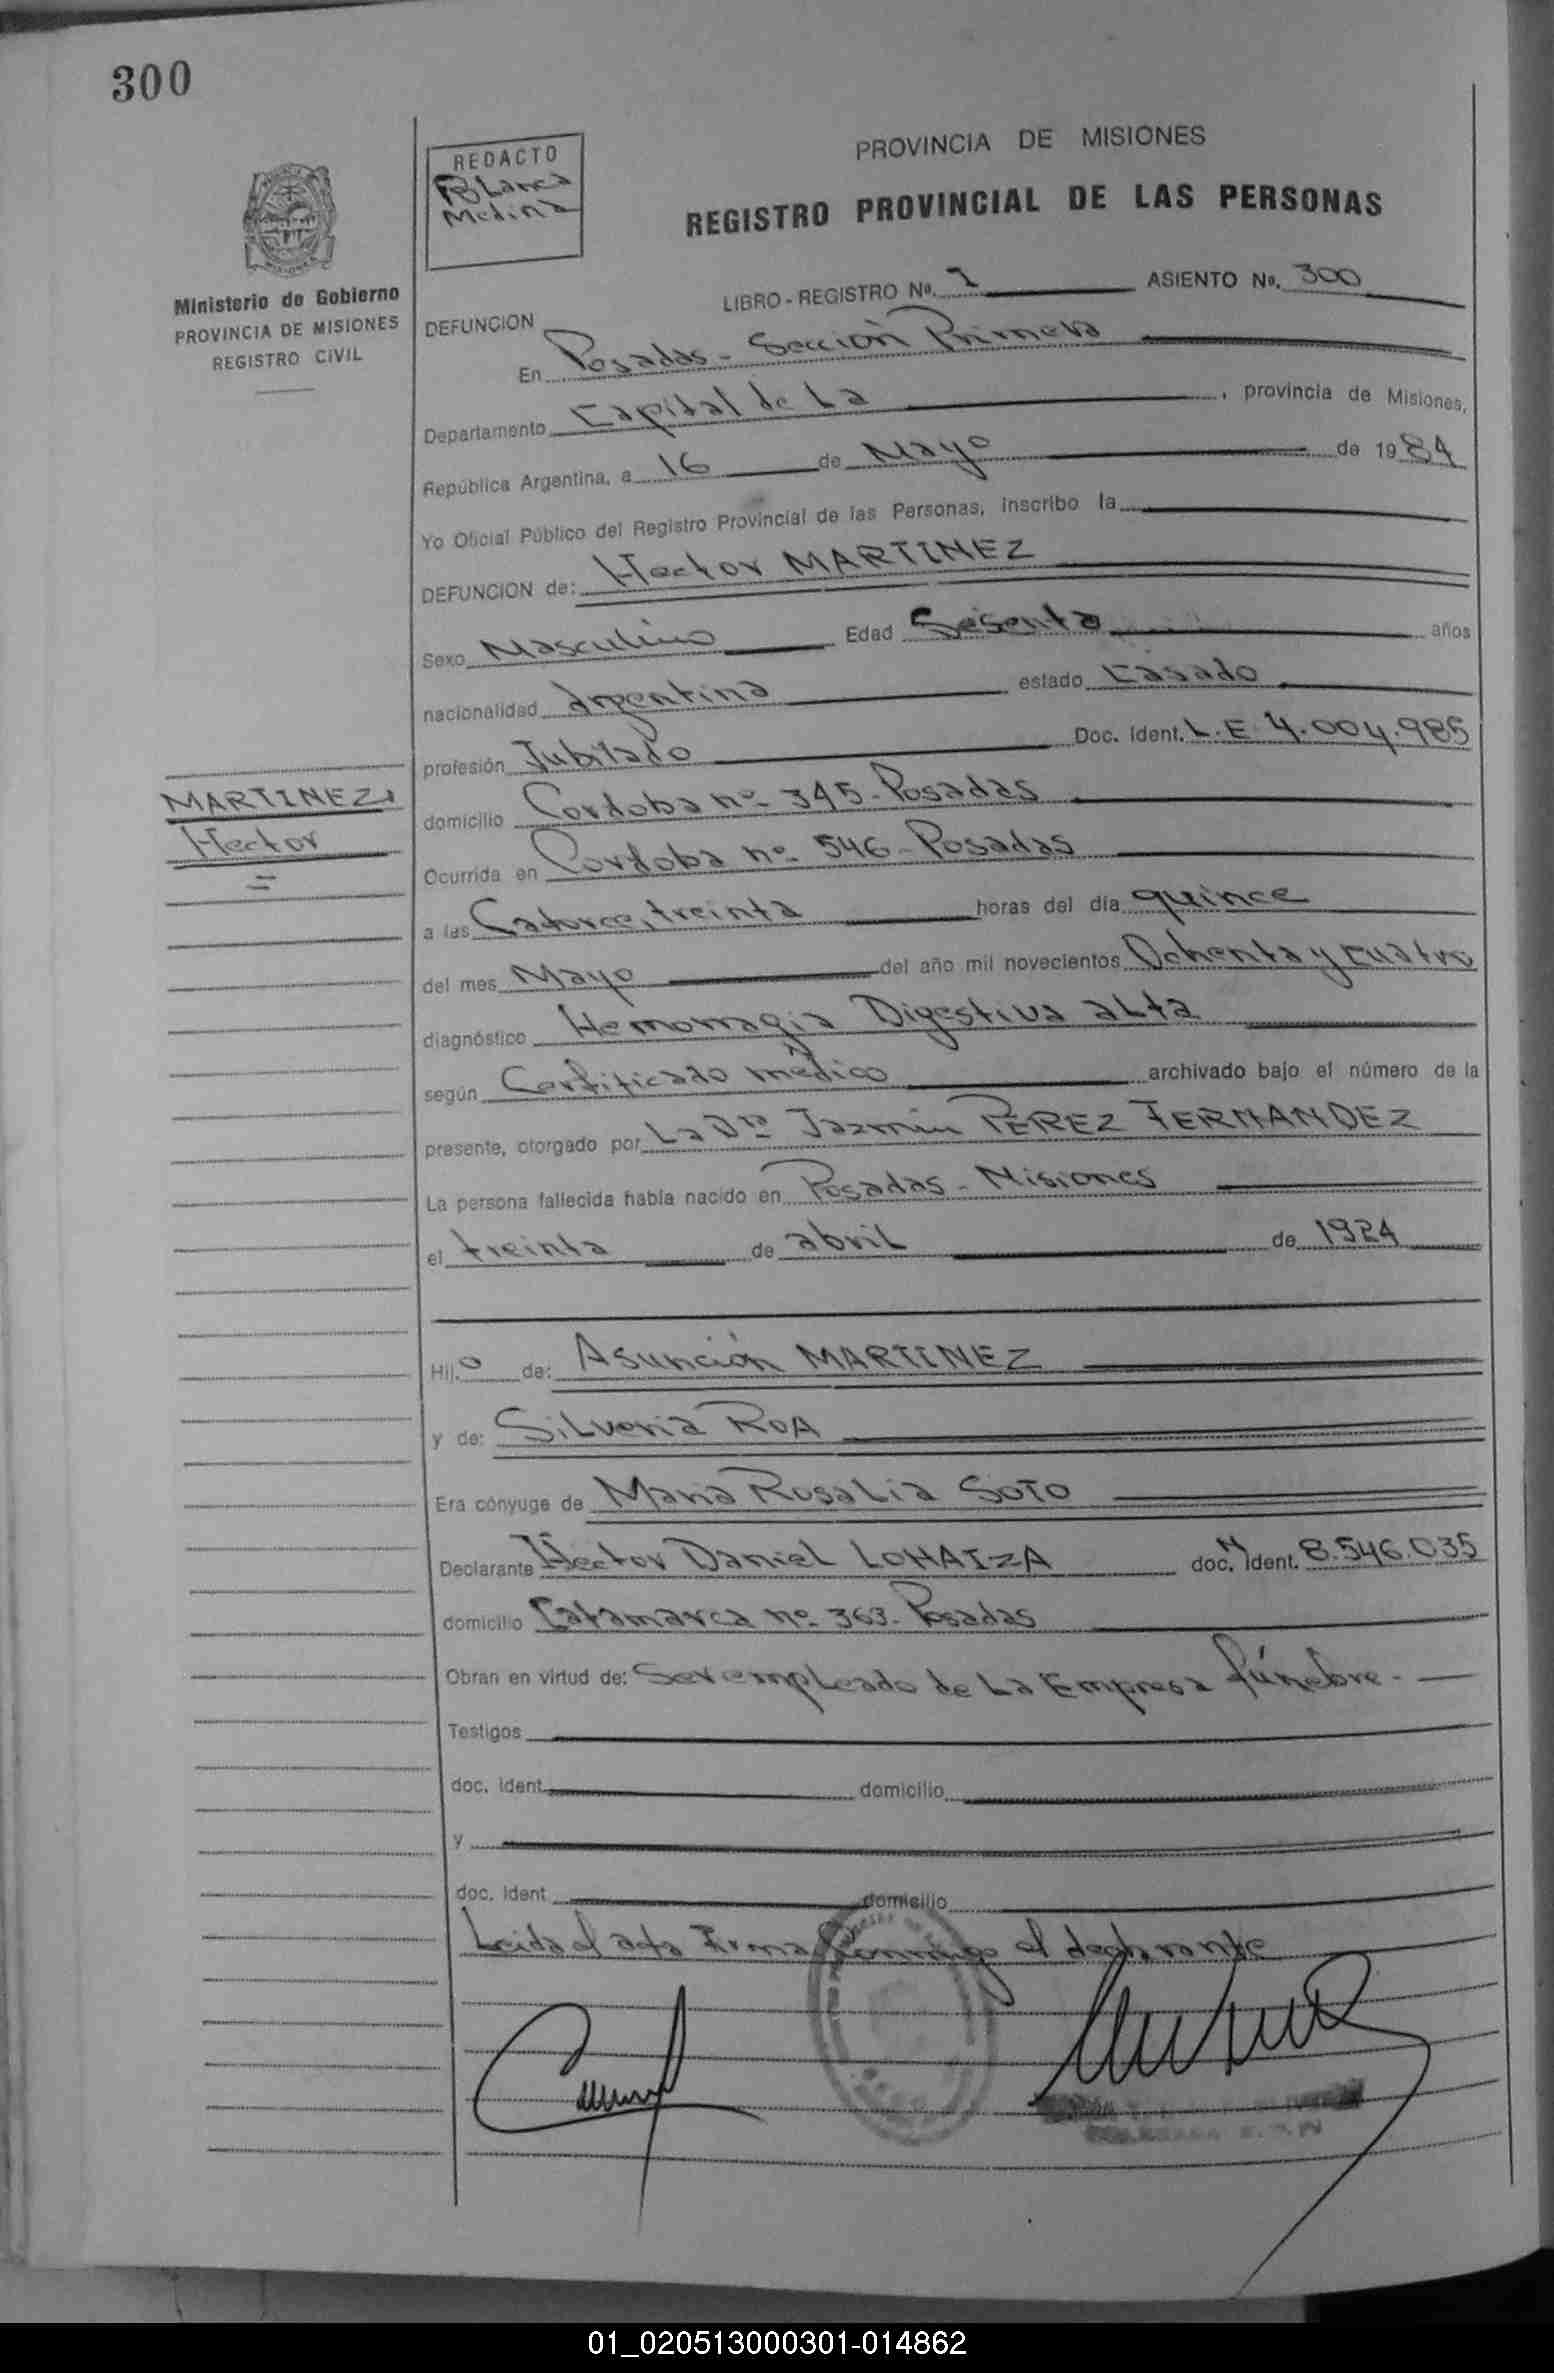 300
REDACTO
Blanca
Medina
PROVINCIA DE MISIONES
REGISTRO PROVINCIAL DE LAS PERSONAS
Ministerio de Gobierno
PROVINCIA DE MISIONES
REGISTRO CIVIL
LIBRO - REGISTRO Nº. 1 ASIENTO Nº. 300
DEFUNCION
En Posadas - Sección Primera
Departamento Capital de La , provincia de Misiones,
República Argentina, a 16 de Mayo de 1984
Yo Oficial Público del Registro Provincial de las Personas, inscribo la
DEFUNCION de: Hector MARTINEZ
Sexo Masculino Edad Sesenta años
nacionalidad Argentina estado Casado
profesión Jubilado Doc. Ident. L.E. 4.004.985
MARTINEZ,
Hector
=
domicilio Cordoba nº 345 - Posadas
Ocurrida en Cordoba nº 546 - Posadas
a las Catorce, treinta horas del día quince
del mes Mayo del año mil novecientos Ochenta y cuatro
diagnóstico Hemorragia Digestiva alta
según Certificado médico archivado bajo el número de la
presente, otorgado por La Dra Jazmin PEREZ FERNANDEZ
La persona fallecida había nacido en Posadas - Misiones
el treinta de abril de 1924
Hij o de: Asunción MARTINEZ
y de: Silveria ROA
Era cónyuge de Maria Rosalia SOTO
Declarante Hector Daniel LOHAIZA doc. N Ident. 8.546.035
domicilio Catamarca nº 363 - Posadas
Obran en virtud de: Ser empleado de La Empresa fúnebre. -
Testigos
doc. Ident. domicilio
y
doc. Ident domicilio
Leida el acta Firma conmigo el declarante
01_020513000301-014862